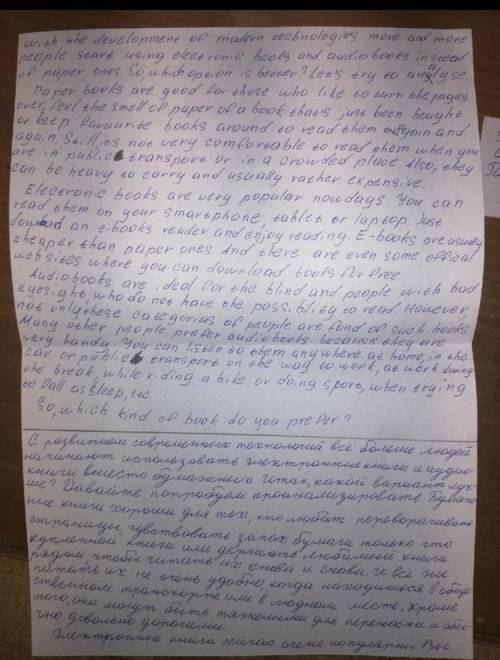 With the development of modern technologies more and more
people start using electronic books and audiobooks instead
of paper ones So, which option is better? Let's try to analyse.
Paper books are good for those who like to turn the pages
over, feel the smell of paper of a book that's just been bought
or keep favourite books around to read them again and
again. Still its not very comfortable to read them when you
are in public transport or in a crowded place. Also, they
can be heavy to carry and usually rather expensive.
Electronic books are very popular nowdays You can
read them on your smartphone, tablets or laptop. Just
download an e-books reader and enjoy reading. E-books are usually
cheaper than paper ones And there are even some offical
websites where you can download books for free
Audiobooks are ideal for the blind and people with bad
eyesight, who do not have the possibility to read. However,
not only these categories of people are fond of such books.
Many other people prefer audiobooks because they are
very handy. You can listen to them anywhere at home, in the
car or public transport on the way to work, at work during
the break, while riding a bike or doing sport, when trying
to fall assleep, etc
So, which kind of book do you prefer?
С развитием современных технологий всё больше людей
начинают использовать электронные книги и аудио-
книги вместо бумажных Итак, какой вариант луч-
ше? Давайте попробуем проанализировать Бумаж-
ные книги хороши для тех, кто любит переворачивать
страницы, чувствовать запах бумаги только что
купленной книги или держать любимые книги
рядом чтобы читать их снова и снова. И всё же
читать их не очень удобно, когда находишься в общ-
ственном транспорте или в людном месте. Кроме
того, они могут быть тяжелыми для переноски и обы-
чно довольно дорогими
Электронные книги сейчас очень популярны Вы